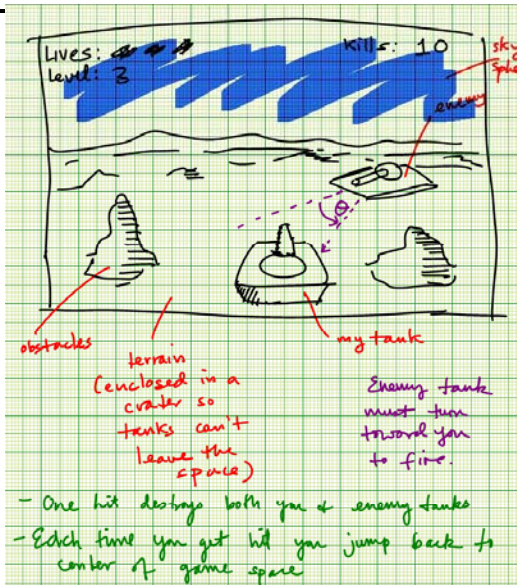 Lives:
Kills: 10
Level: 3
sky
sphe
enemy
θ
obstacles
my tank
terrain
(enclosed in a
crater so
tanks can't
leave the
space)
Enemy tank
must turn
toward you
to fire.
- One hit destroys both you & enemy tanks
- Each time you get hit you jump back to
center of game space